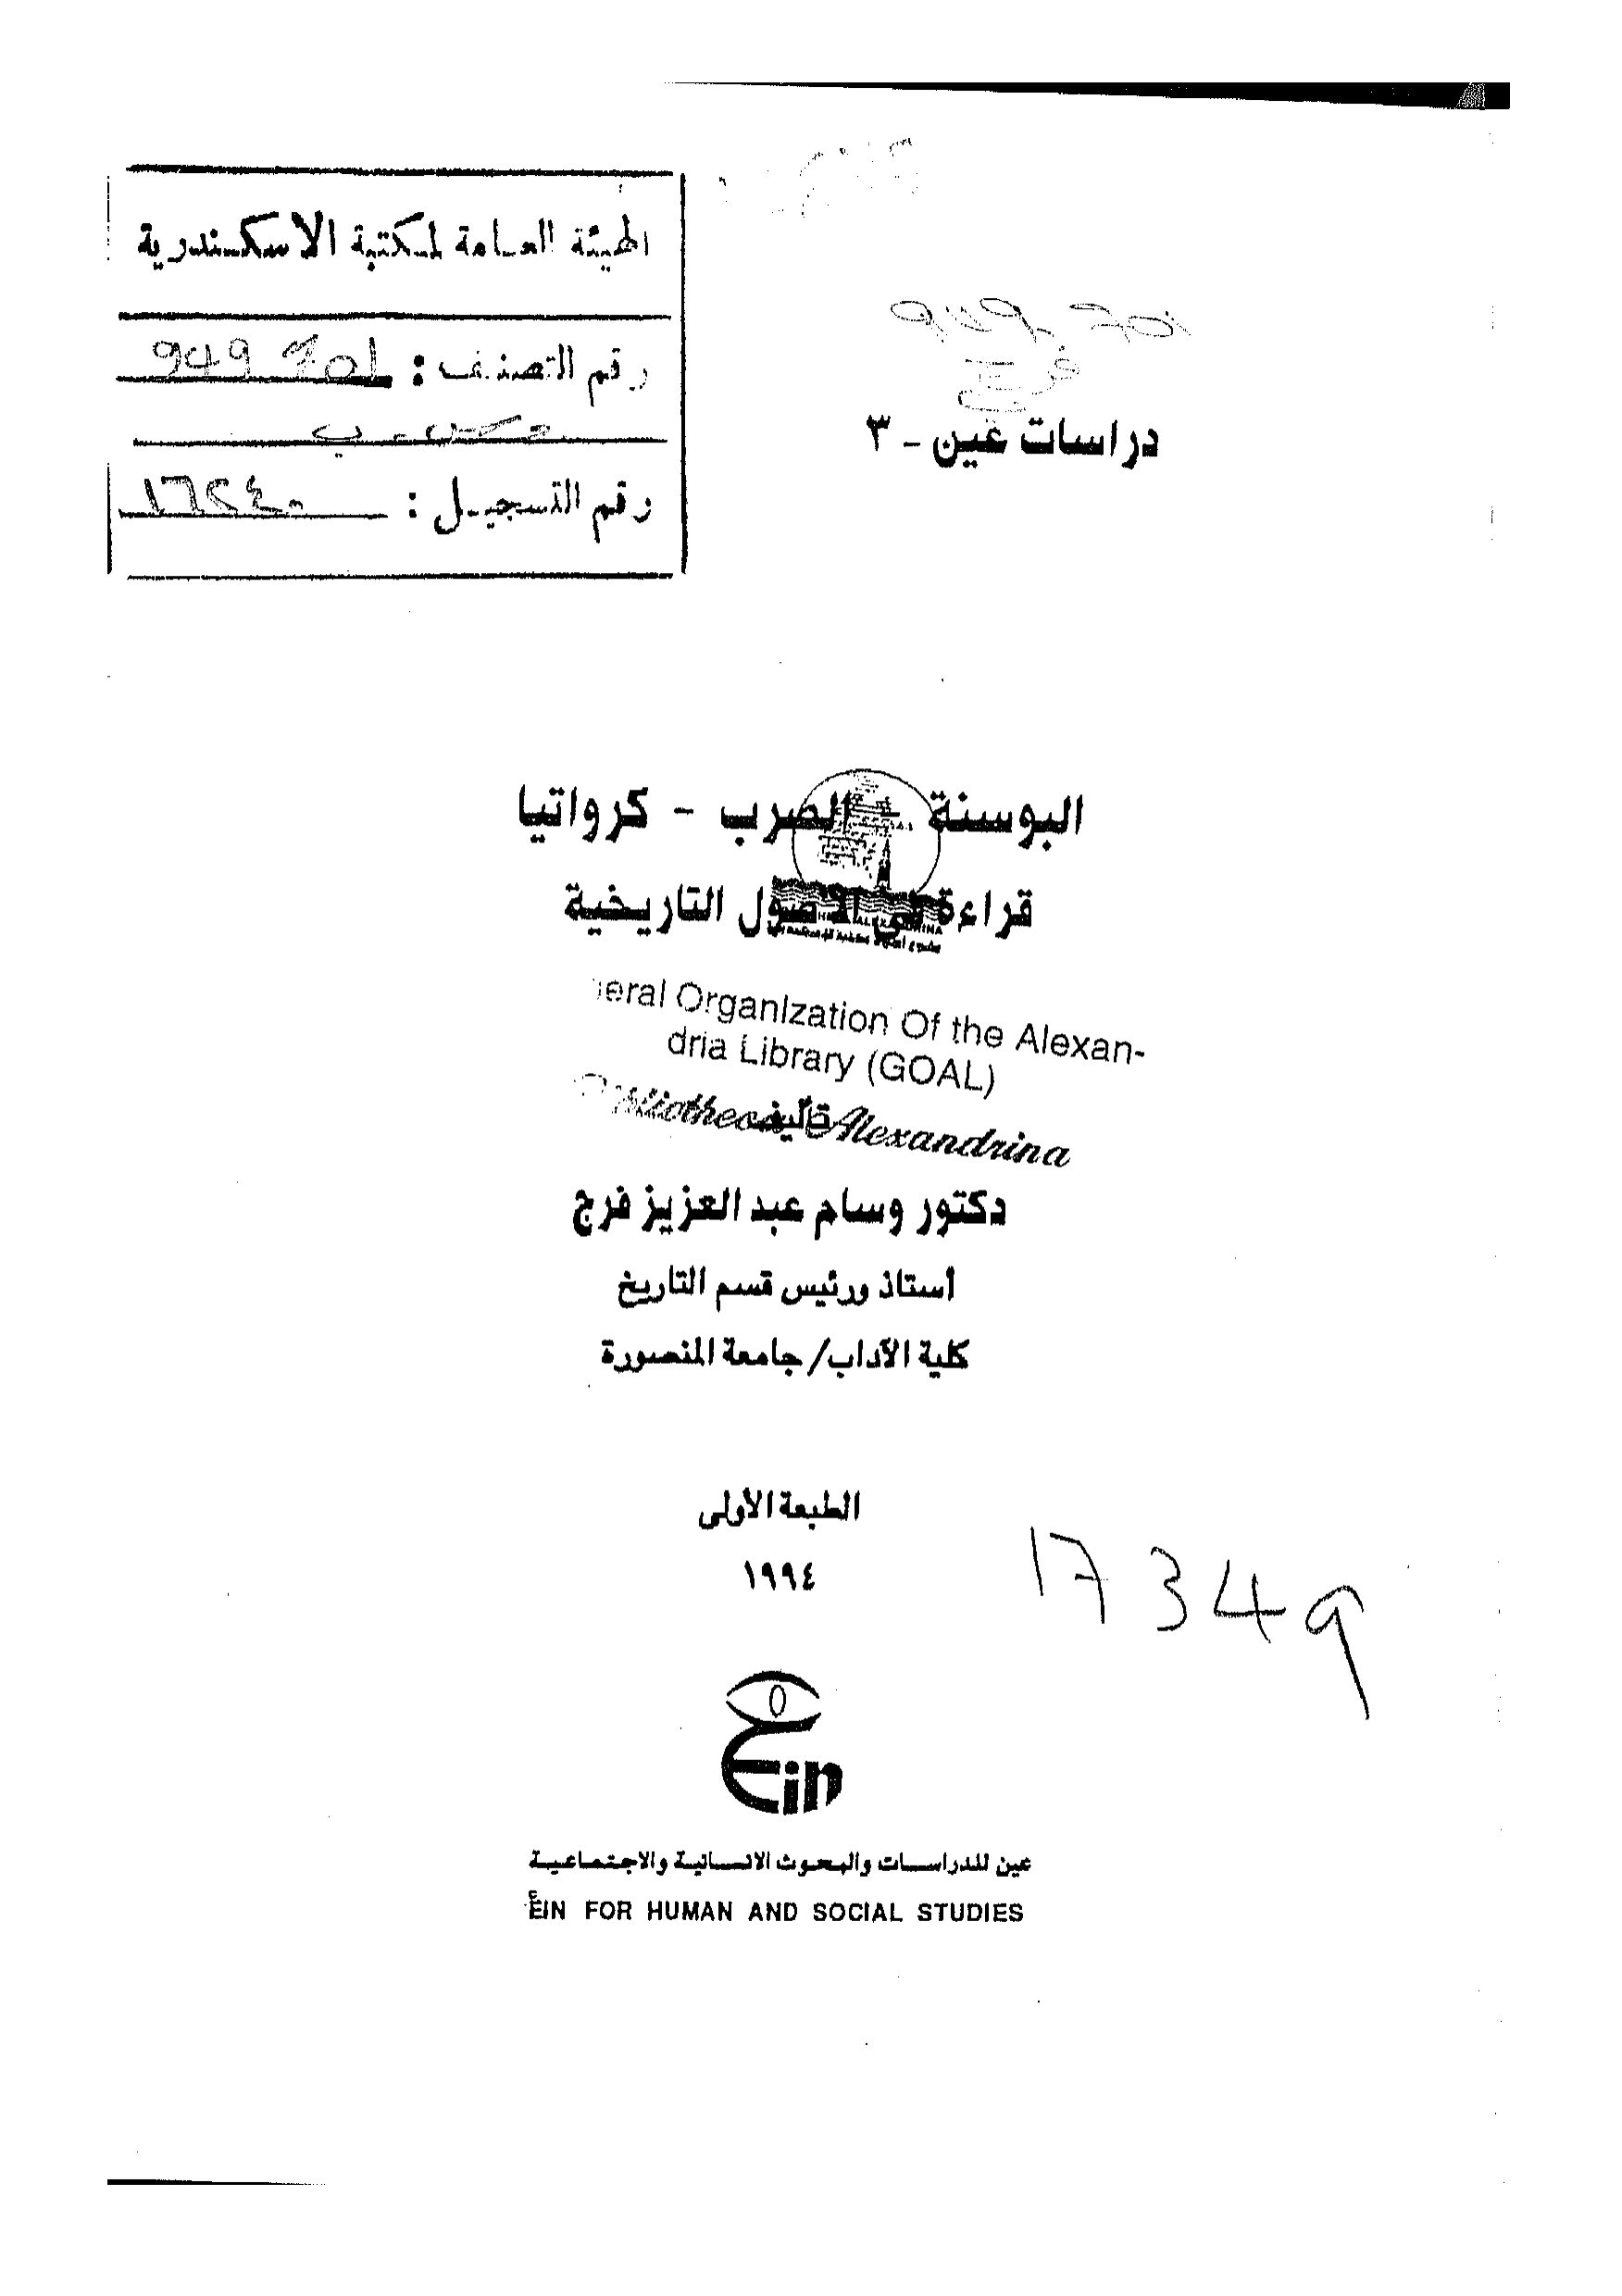 الهيئة العامة لمكتبة الاسكندرية
رقم التصنيف : 949.701
رقم التسجيل : ١٦٢٤٠
دراسات عين - ٣
البوسنة - الصرب - كرواتيا
قراءة فى الأصول التاريخية
General Organization Of the Alexan-
dria Library (GOAL)
Bibliotheca Alexandrina
تأليف
دكتور وسام عبد العزيز فرج
أستاذ ورئيس قسم التاريخ
كلية الآداب/جامعة المنصورة
الطبعة الأولى
١٩٩٤
17349
Ein
عين للدراسات والبحوث الانسانية والاجتماعية
EIN FOR HUMAN AND SOCIAL STUDIES